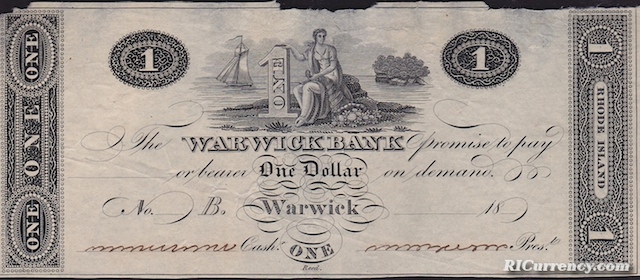 ONE ONE ONE
1
1 ONE
1
1 RHODE ISLAND 1
The WARWICK BANK promise to pay
or bearer One Dollar on demand.
No. B. Warwick 18
Cash. ONE Pres.t
Reed.
RICurrency.com